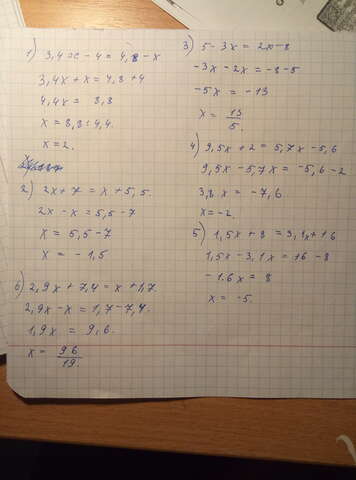 1) 3,4x - 4 = 4,8 - x
3,4x + x = 4,8 + 4
4,4x = 8,8
x = 8,8 : 4,4.
x = 2.
2) 2x + 7 = x + 5,5.
2x - x = 5,5 - 7
x = 5,5 - 7
x = - 1,5
6) 2,9x + 7,4 = x + 1,7
2,9x - x = 1,7 - 7,4.
1,9x = 9,6.
x = 96/19.
3) 5 - 3x = 2x - 8
-3x - 2x = -8 - 5
-5x = -13
x = 13/5.
4) 9,5x + 2 = 5,7x - 5,6
9,5x - 5,7x = -5,6 - 2
3,8x = -7,6
x = -2.
5) 1,5x + 8 = 3,1x + 16
1,5x - 3,1x = 16 - 8
-1.6x = 8
x = -5.